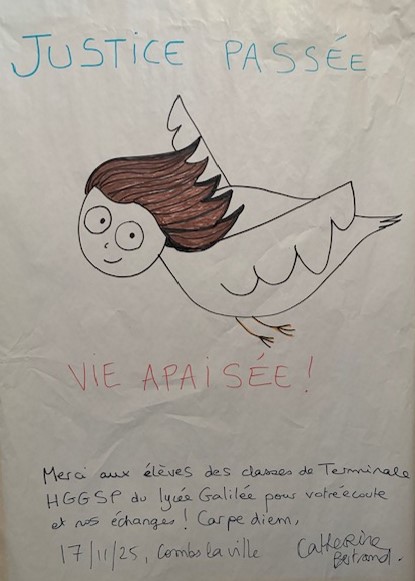 JUSTICE PASSÉE
VIE APAISÉE !
Merci aux élèves des classes de Terminale
HGGSP du lycée Galilée pour votre écoute
et nos échanges ! Carpe diem,
17/11/25, Combs la ville
Catherine
Bertrand.